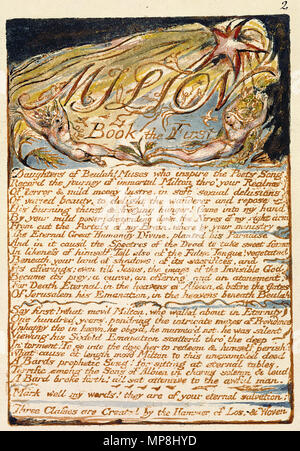 2
MILTON
Book the First
Daughters of Beulah! Muses who inspire the Poets Song
Record the journey of immortal Milton thro' your Realms
Of terror & mild moony lustre, in soft sexual delusions
Of varied beauty, to delight the wanderer and repose
His burning thirst & freezing hunger! Come into my hand
By your mild power; descending down the Nerves of my right arm
From out the Portals of my Brain, where by your ministry
The Eternal Great Humanity Divine, planted his Paradise,
And in it caus'd the Spectres of the Dead to take sweet forms
In likeness of himself. Tell also of the False Tongue! vegetated
Beneath your land of shadows: of its sacrifices, and
its offerings; even till Jesus, the image of the Invisible God
Became its prey; a curse, an offering, and an atonement,
For Death Eternal in the heavens of Albion, & before the Gates
Of Jerusalem his Emanation, in the heavens beneath Beulah
Say first! what mov'd Milton, who walkd about in Eternity
One hundred years, pondring the intricate mazes of Providence
Unhappy tho in heav'n, he obey'd, he murmur'd not. he was silent
Viewing his Sixfold Emanation scatter'd thro' the deep
In torment! To go into the deep her to redeem & himself perish?
What cause at length mov'd Milton to this unexampled deed
A Bards prophetic Song! for sitting at eternal tables,
Terrific among the Sons of Albion in chorus solemn & loud
A Bard broke forth! all sat attentive to the awful man.
Mark well my words! they are of your eternal salvation:
Three Classes are Created by the Hammer of Los, & Woven
alamy
Image ID: MP8HYD
www.alamy.com